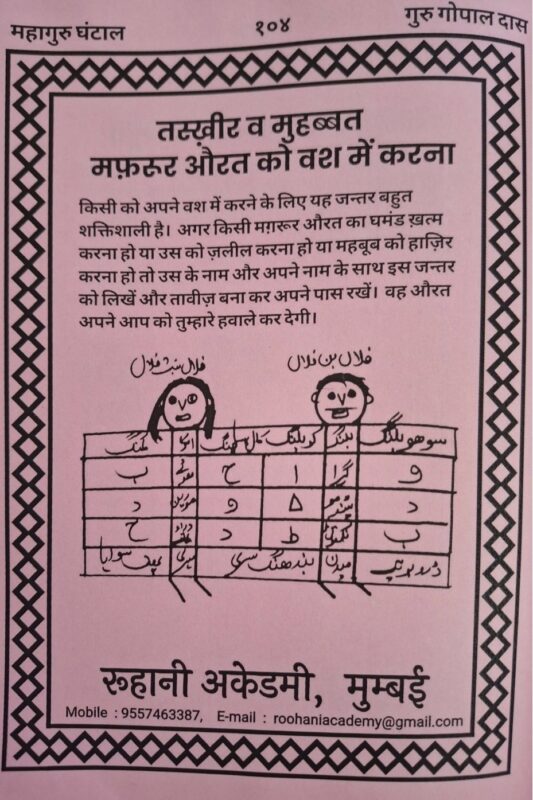 महागुरु घंटाल
१०४
गुरु गोपाल दास
तस्ख़ीर व मुहब्बत
मफ़रूर औरत को वश में करना
किसी को अपने वश में करने के लिए यह जन्तर बहुत
शक्तिशाली है। अगर किसी मग़रूर औरत का घमंड ख़त्म
करना हो या उस को ज़लील करना हो या महबूब को हाज़िर
करना हो तो उस के नाम और अपने नाम के साथ इस जन्तर
को लिखें और तावीज़ बना कर अपने पास रखें। वह औरत
अपने आप को तुम्हारे हवाले कर देगी।
فلاں بن فلاں
فلاں بنت فلاں
و ا ح ب
د ۵ و د
ب ط د ح
रूहानी अकेडमी, मुम्बई
Mobile : 9557463387, E-mail : roohaniacademy@gmail.com